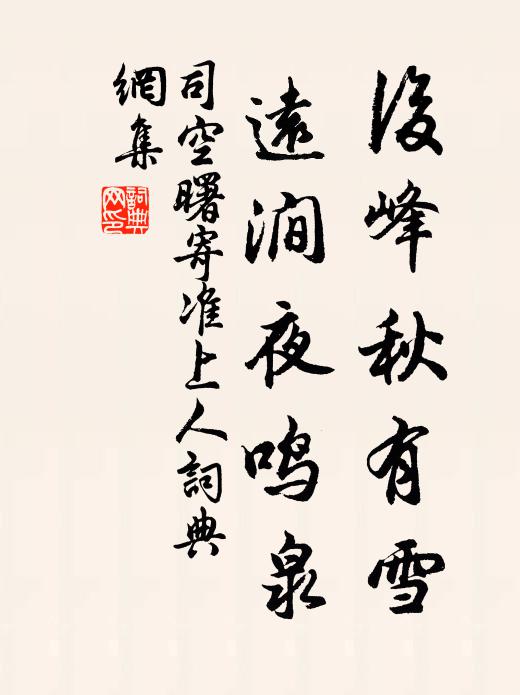 後峰秋有雪
遠澗夜鳴泉
司空曙寄准上人詞典
網集
詞典網印